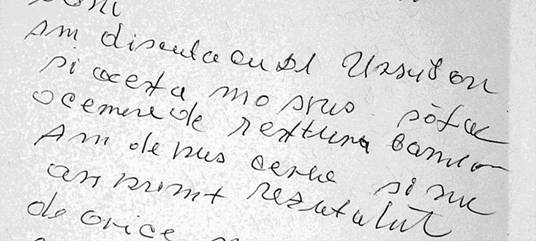 am discuta cu Dl Ursu
si acesta mo spus sò fac
o cerere de restturia banilor
Am depus cerea si nu
am primit rezutatul
de orice